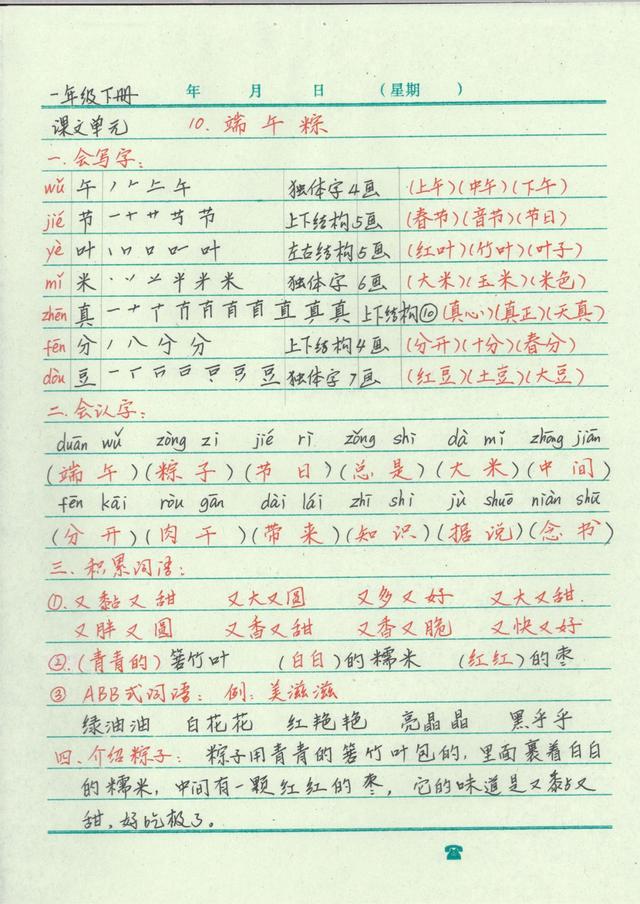 一年级下册 年 月 日 (星期 )
课文单元 10. 端午粽
一.会写字:
wǔ 午 丿 𠂉 午 独体字4画 (上午)(中午)(下午)
jié 节 一 十 艹 节 上下结构5画 (春节)(音节)(节日)
yè 叶 丨 口 叶 左右结构5画 (红叶)(竹叶)(叶子)
mǐ 米 丶 丷 半 米 独体字6画 (大米)(玉米)(米色)
zhēn 真 一 十 直 真 真 上下结构⑩ (真心)(真正)(天真)
fēn 分 丿 八 分 分 上下结构4画 (分开)(十分)(春分)
dòu 豆 一 豆 独体字7画 (红豆)(土豆)(大豆)
二.会认字:
duān wǔ zòng zi jié rì zǒng shì dà mǐ zhōng jiān
(端午)(粽子)(节日)(总是)(大米)(中间)
fēn kāi ròu gān dài lái zhī shi jù shuō niàn shū
(分开)(肉干)(带来)(知识)(据说)(念书)
三.积累词语:
①.又黏又甜 又大又圆 又多又好 又大又甜.
又胖又圆 又香又甜 又香又脆 又快又好
②.(青青的)箬竹叶 (白白)的糯米 (红红)的枣
③ ABB式词语: 例:美滋滋
绿油油 白花花 红艳艳 亮晶晶 黑乎乎
四.介绍粽子: 粽子用青青的箬竹叶包的,里面裹着白白
的糯米,中间有一颗红红的枣,它的味道是又黏又
甜,好吃极了。